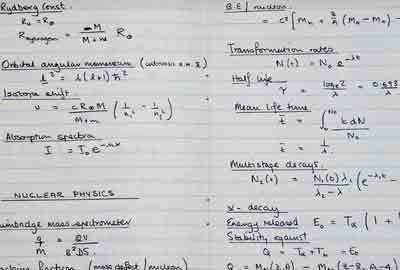 Rydberg Const.
R∞ = R∞
R hydrogen = M / M+m R∞
Orbital angular momentum (intrinsic a.m. s)
l² = l(l+1)ħ²
Isotope shift.
ν = cR∞M / M+m (1/n₁² − 1/n₂²)
Absorption spectra
I = I₀e^-nαx
NUCLEAR PHYSICS
mass spectrometer
q/M = 2V / B²D²
fraction (mass defect / nucleon)
B.E / nucleon
= c² [Mn + Z/A (MH − Mn) −
Transformation rates.
N(t) = N₀ e^-λt
Half life
τ = loge2 / λ = 0.693 / λ
Mean life time
t̄ = ∫₀^N₀ t dN / N₀
t̄ = 1/λ
Multistage decays.
N₂(t) = N₁(0) λ₁ / λ₂ − λ₁ (e^-λ₁t −
α - decay
Energy released E₀ = Tα (1 +
Stability against
Q = Tα + Tb = E₀
Q = Mn(Z,A) − Mn(Z-2, A-4)